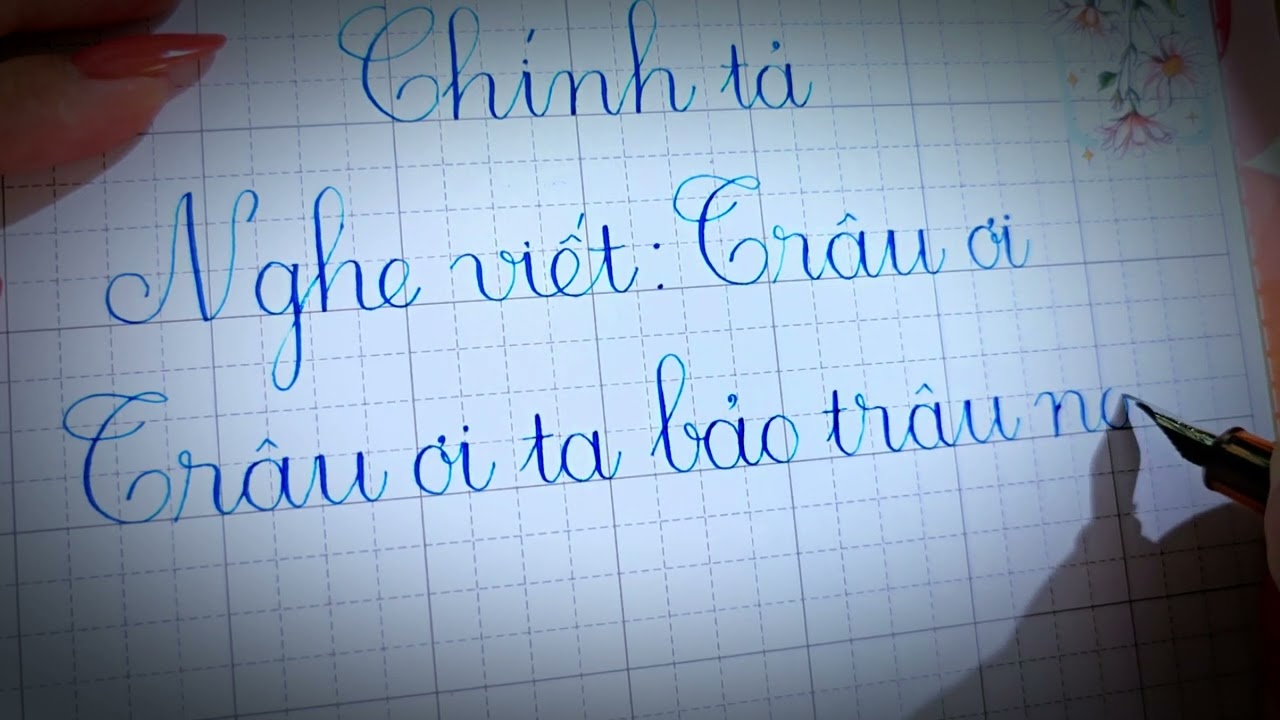 Chính tả
Nghe viết: Trâu ơi
Trâu ơi ta bảo trâu na